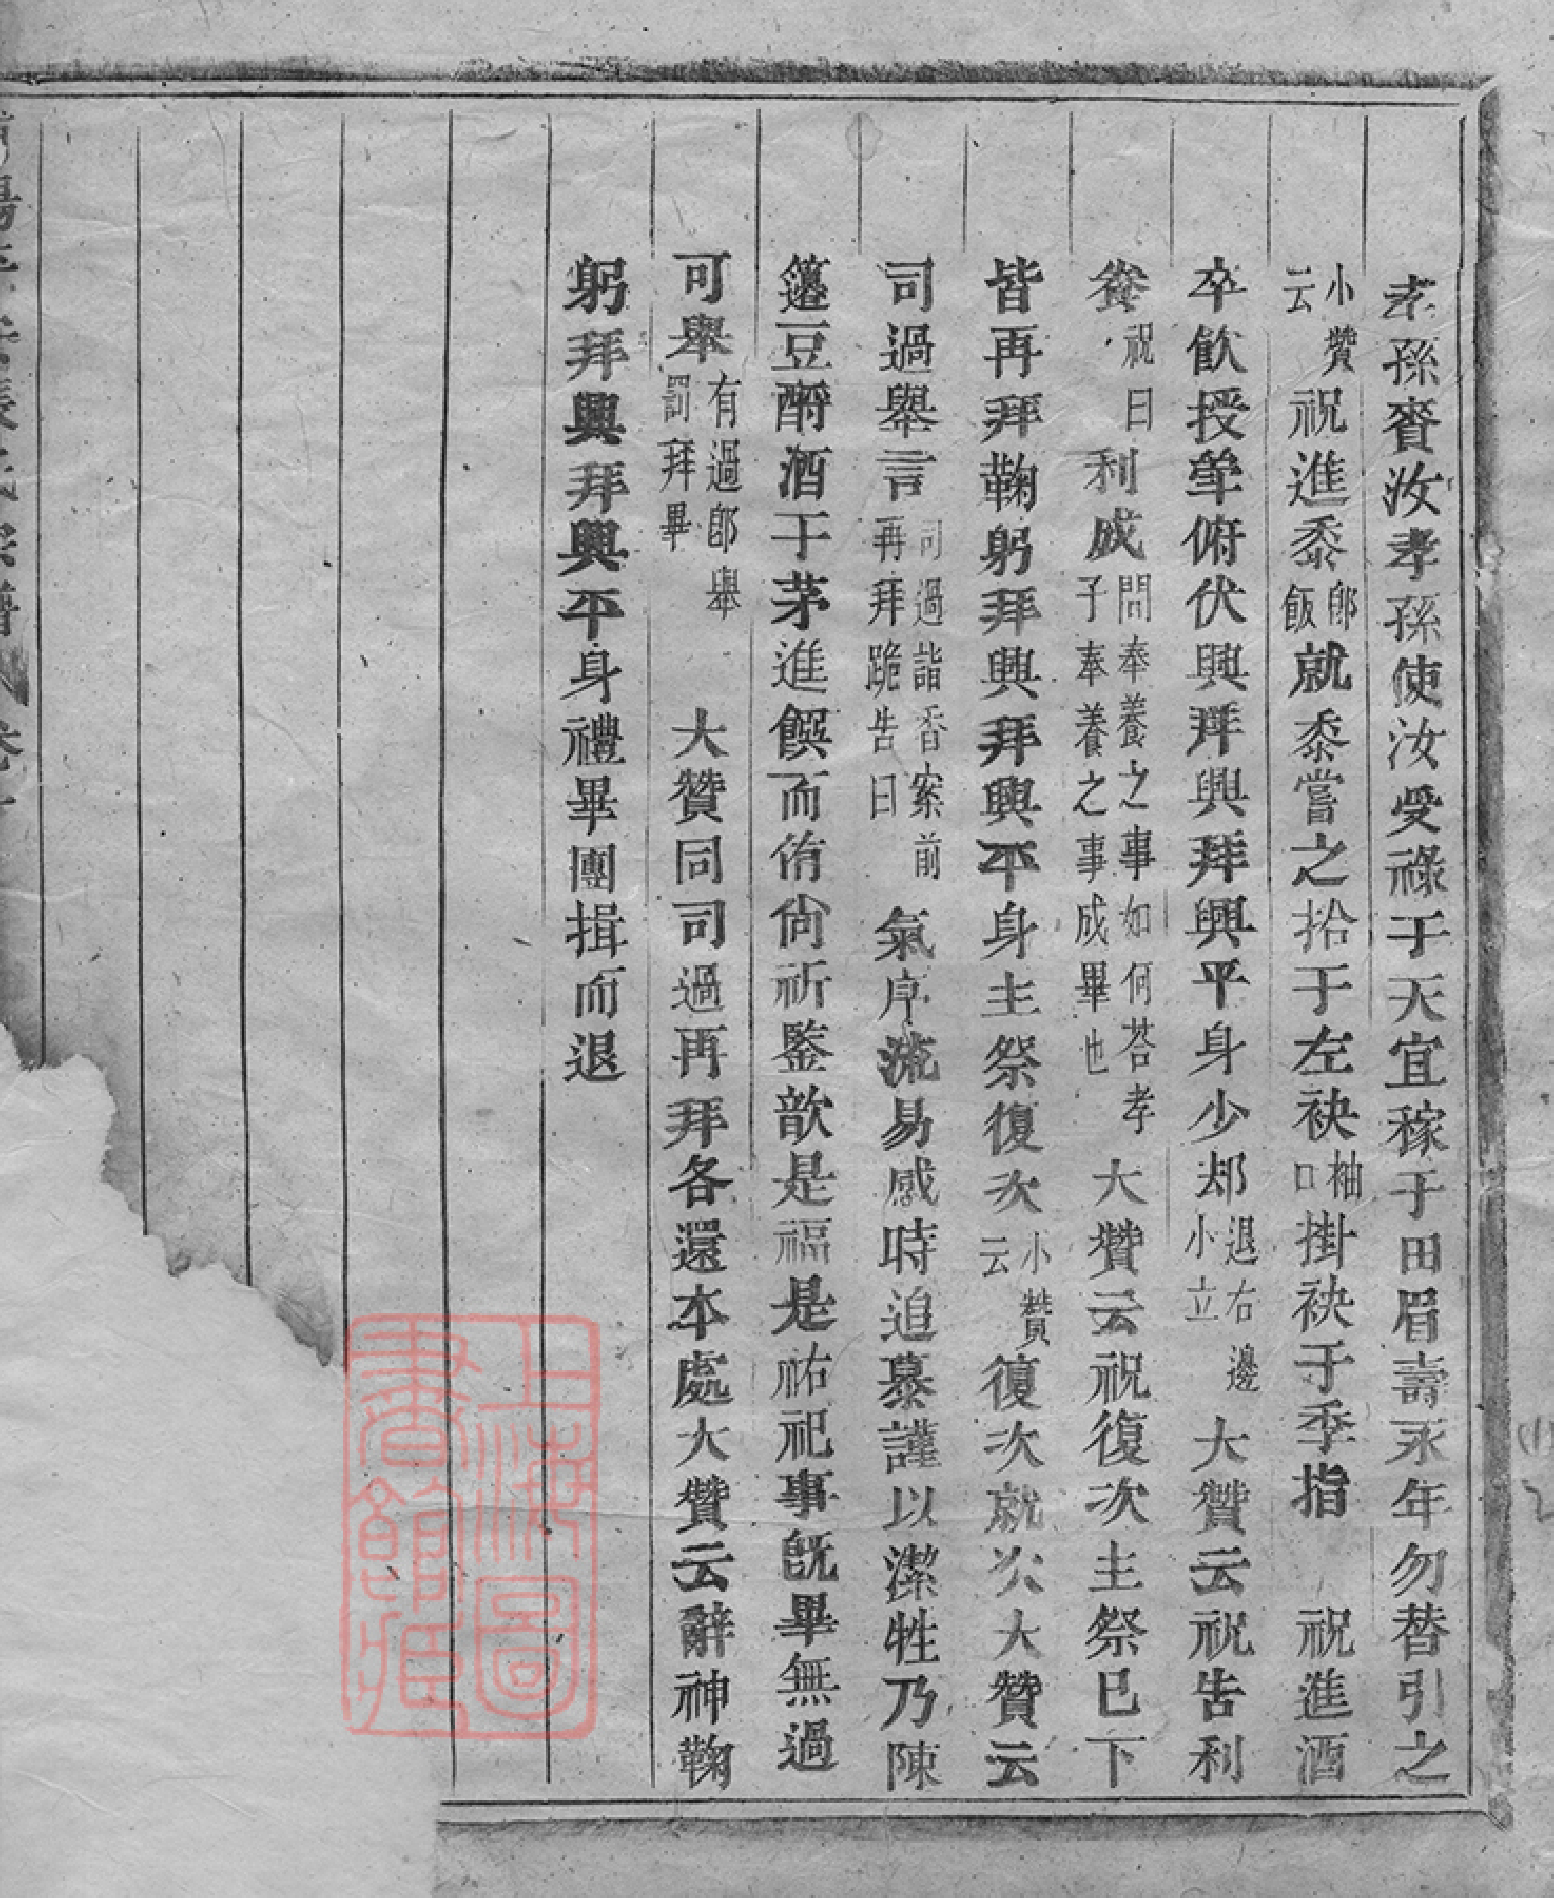 孝孫賚汝孝孫使汝受祿于天宜稼于田眉壽永年勿替引之
小贊云祝進黍卽飯就黍嘗之拾于左袂袖口掛袂于季指 祝進酒
卒飲授筆俯伏興拜興拜興平身少却退右邊小立 大贊云祝告利
養祝曰利成問奉養之事如何荅孝子奉養之事成畢也 大贊云祝復次主祭巳下
皆再拜鞠躬拜興拜興平身主祭復次小贊云 復次就次大贊云
司過舉言司過詣香案前再拜跪告曰 氣序流易感時追慕謹以潔牲乃陳
籩豆酹酒于茅進饌而侑尙祈鑒歆是福是祐祀事旣畢無過
可舉有過卽舉罰拜畢 大贊同司過再拜各還本處大贊云辭神鞠
躬拜興拜興平身禮畢團揖而退
上海圖書館藏